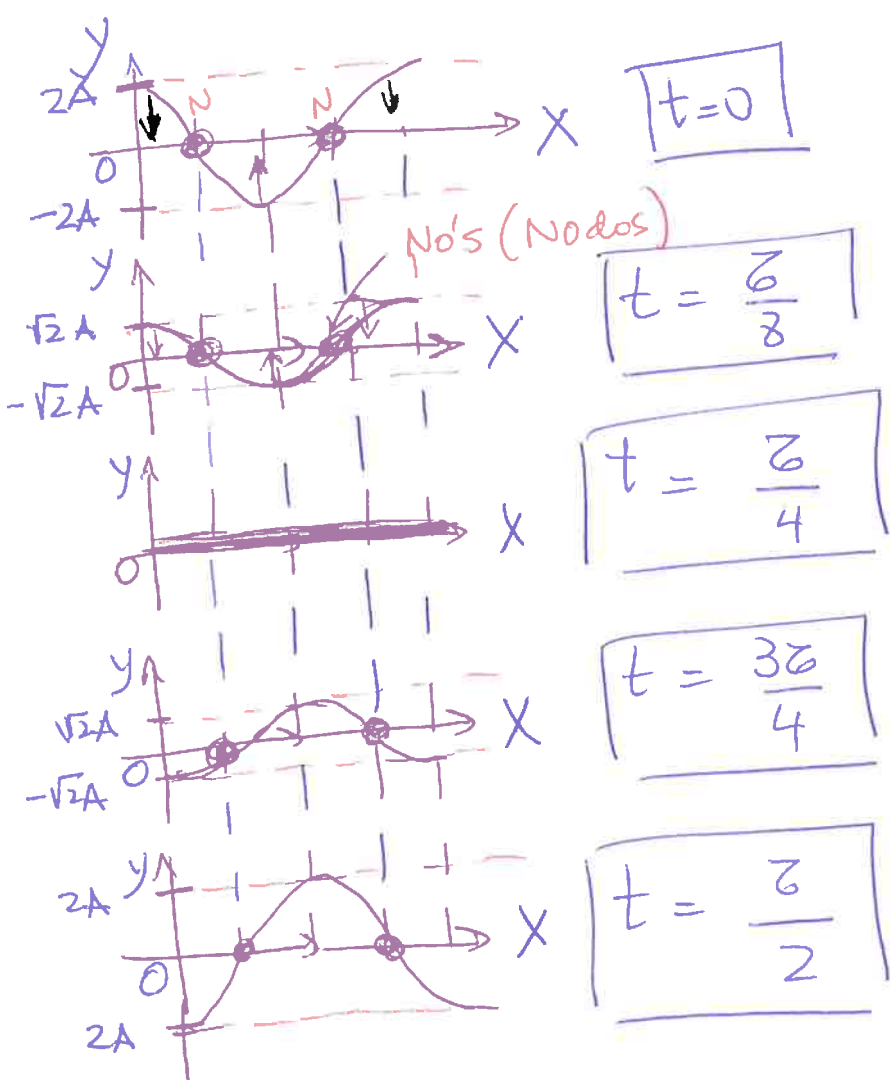 y
2A
N N
X
t=0
0
-2A
Nó's (Nodos)
y
√2A
X
t = τ/8
0
-√2A
y
X
t = τ/4
0
y
√2A
X
t = 3τ/4
0
-√2A
y
2A
X
t = τ/2
0
2A